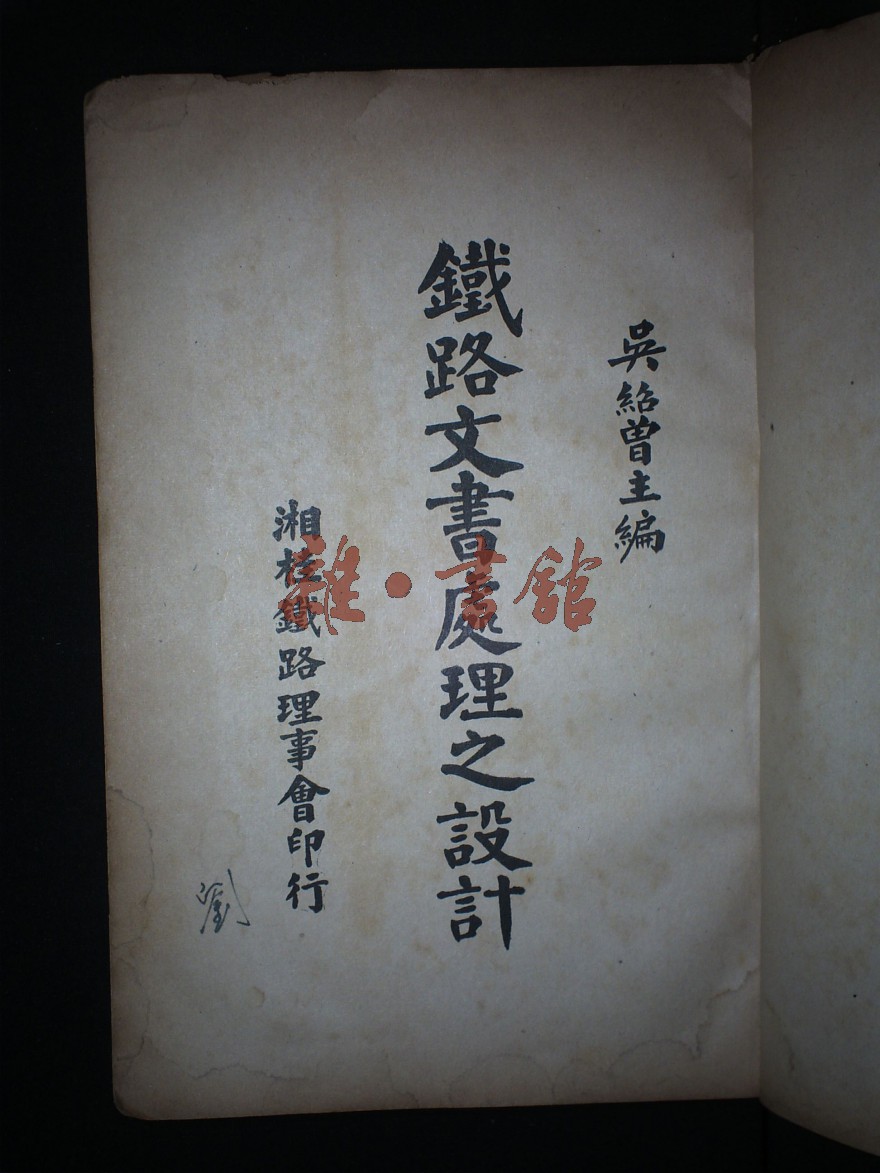 吳紹曾主編
鐵路文書處理之設計
湘桂鐵路理事會印行
劉
雜·書館